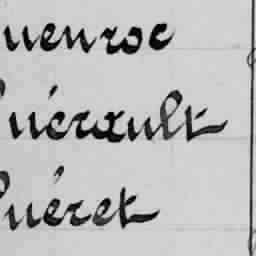 uenroc
uérault
uéret